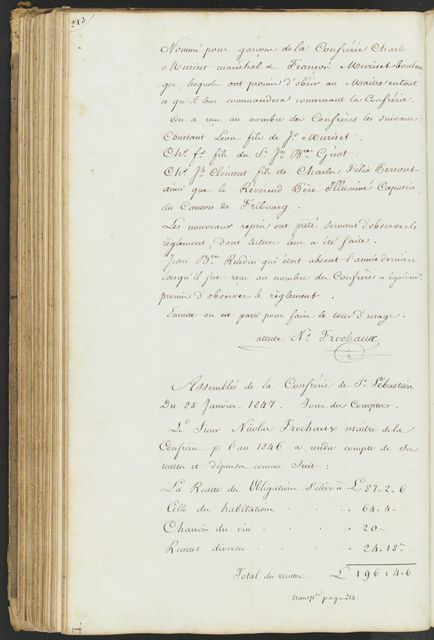 213
Nommé pour garçons de la Confrérie Charle
Muriset maréchal & François Muriset boulan
ger, lesquels ont promis d'obéir au Maître en tout
ce qu'il leur commandera concernant la Confrérie.
On a reçu au nombre des Confrères les suivans:
Constant Léon fils de Jn Muriset.
Chs fs fils du Sr Jn Bte Gicot.
Chs Jh Clément fils de Charles Félix Perroset
ainsi que le Révérend Père Illuminé Capucin
du Canton de Fribourg.
Les nouveaux reçus ont prêté serment d'observer le
règlement, dont lecture leur a été faite.
Jean Bte Ruedin qui étoit absent l'année dernière
lorsqu'il fut reçu au nombre des Confrères a également
promis d'observer le règlement.
Ensuite on est parti pour faire le tour d'usage.
atteste Ns Frochaux
Assemblée de la Confrérie de St Sébastien
Du 25 Janvier 1847. Jour des Comptes.
Le Sieur Nicolas Frochaux maître de la
Confrérie p. l'an 1846 a rendu compte de ses
recettes et dépenses comme suit:
La Recette des Obligations s'élève à L 87.2.6
Celle des habitations . . . . 64.4.
Charroi du vin . . . . 20
Recettes diverses . . . . 24.18
Total des recettes L 196.4.6
transpte page 214.